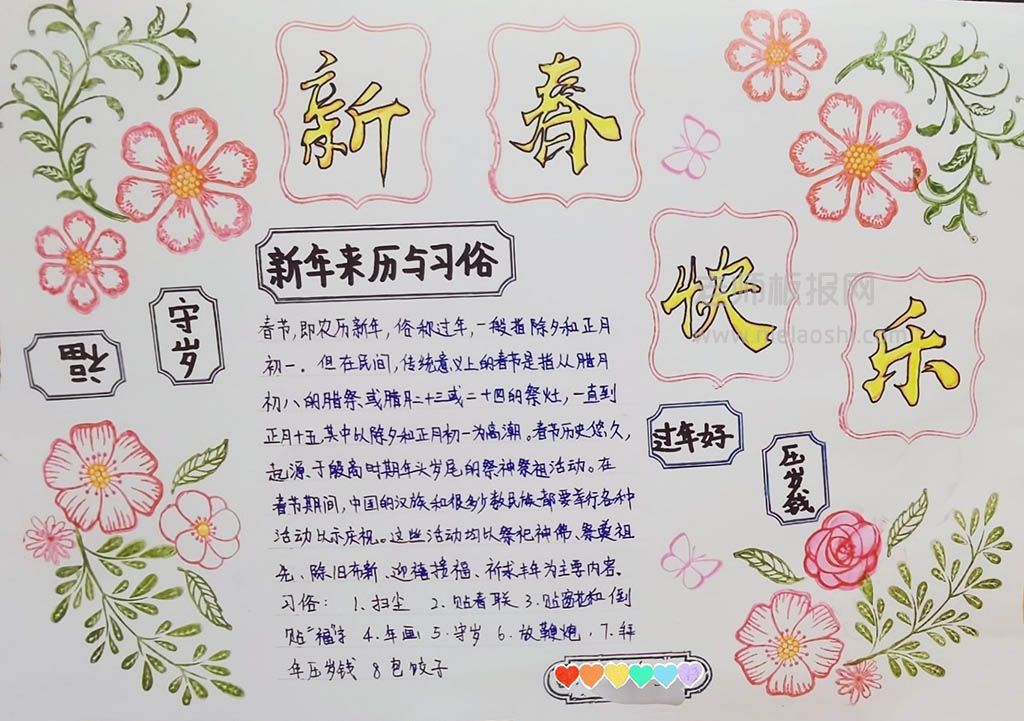 新春
快乐
新年来历与习俗
守岁
福
过年好
压岁钱
春节,即农历新年,俗称过年,一般指除夕和正月
初一。但在民间,传统意义上的春节是指从腊月
初八的腊祭或腊月二十三或二十四的祭灶,一直到
正月十五,其中以除夕和正月初一为高潮。春节历史悠久,
起源于殷商时期年头岁尾的祭神祭祖活动。在
春节期间,中国的汉族和很多少数民族都要举行各种
活动以示庆祝。这些活动均以祭祀神佛、祭奠祖
先、除旧布新、迎禧接福、祈求丰年为主要内容。
习俗: 1、扫尘 2、贴春联 3、贴窗花和倒
贴“福”字 4、年画 5、守岁 6、放鞭炮、7、拜
年压岁钱 8 包饺子
老师板报网